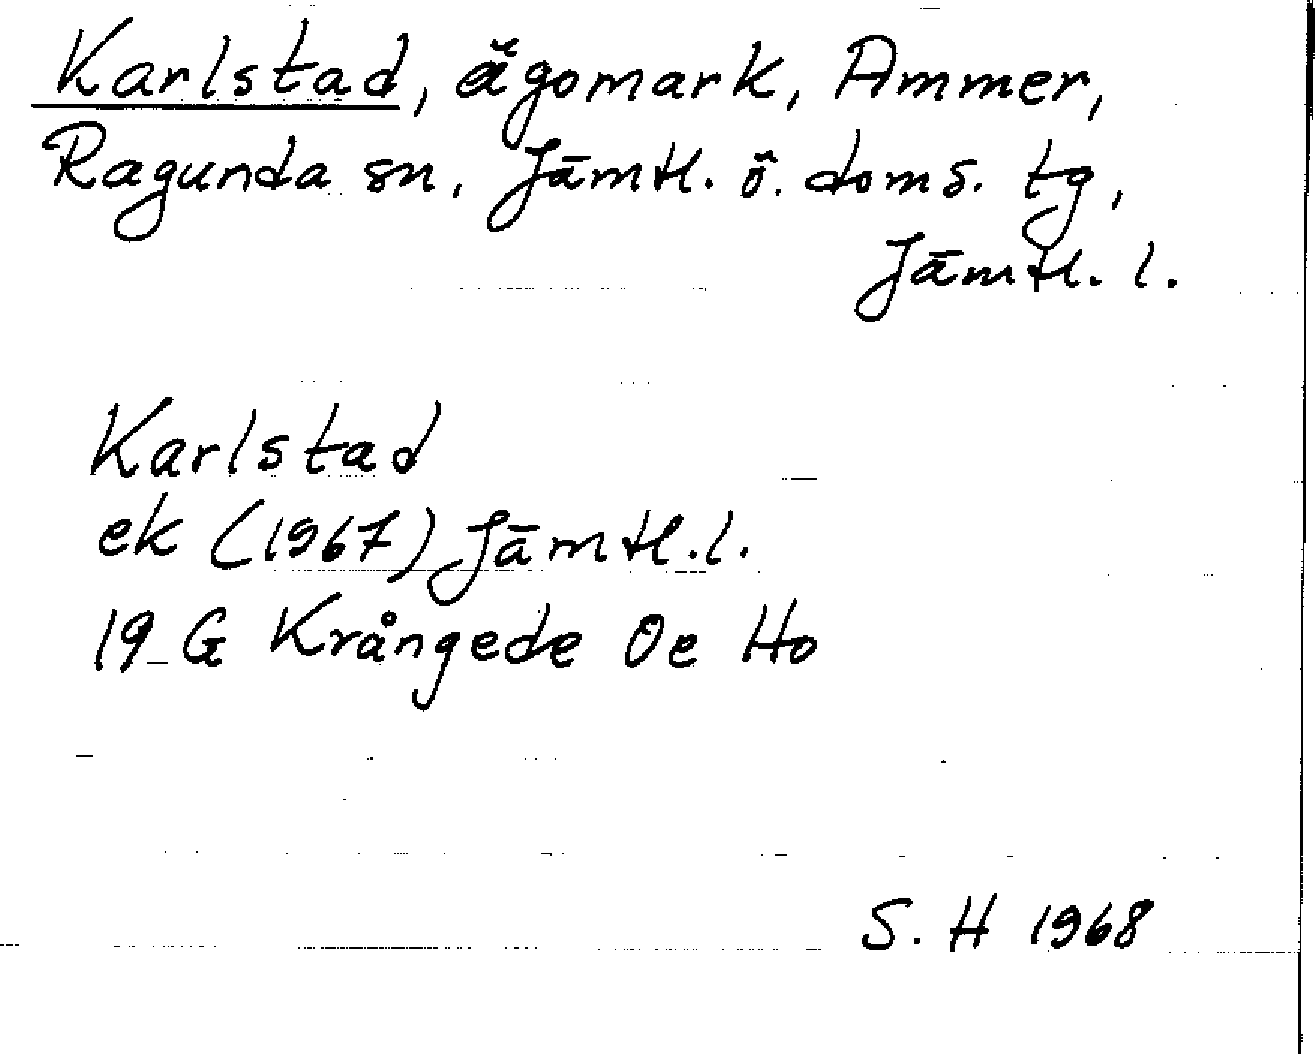 Karlstad, ägomark, Ammer,
Ragunda sn, Jämtl. ö. doms. tg,
Jämtl. l.
Karlstad
ek (1967) Jämtl. l.
19 G Krångede Oe Ho
S. H 1968